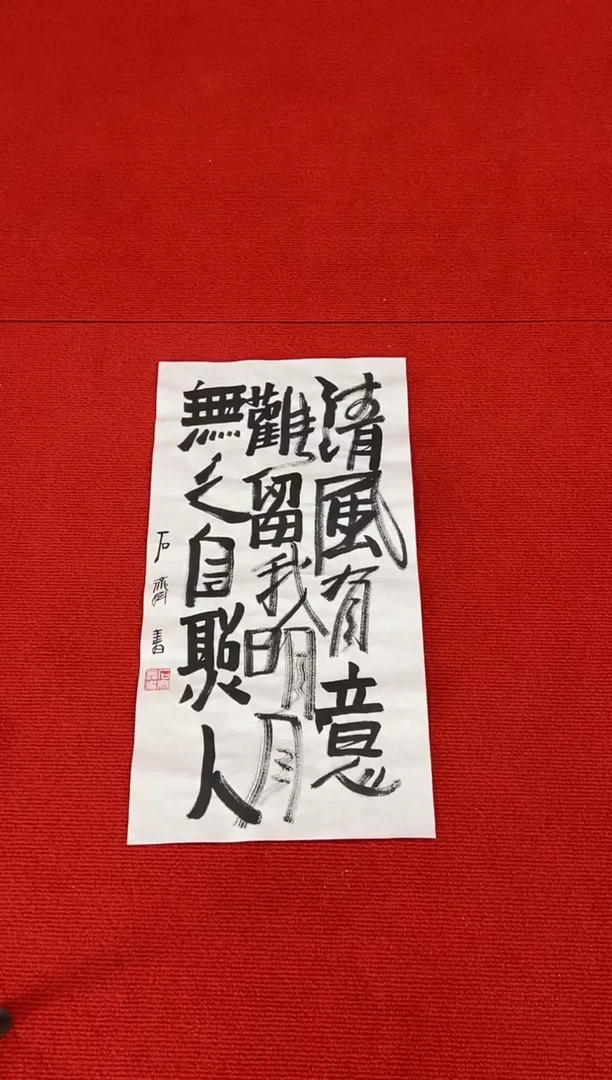 清風有意
難留我明月
無心自照人
石齊書